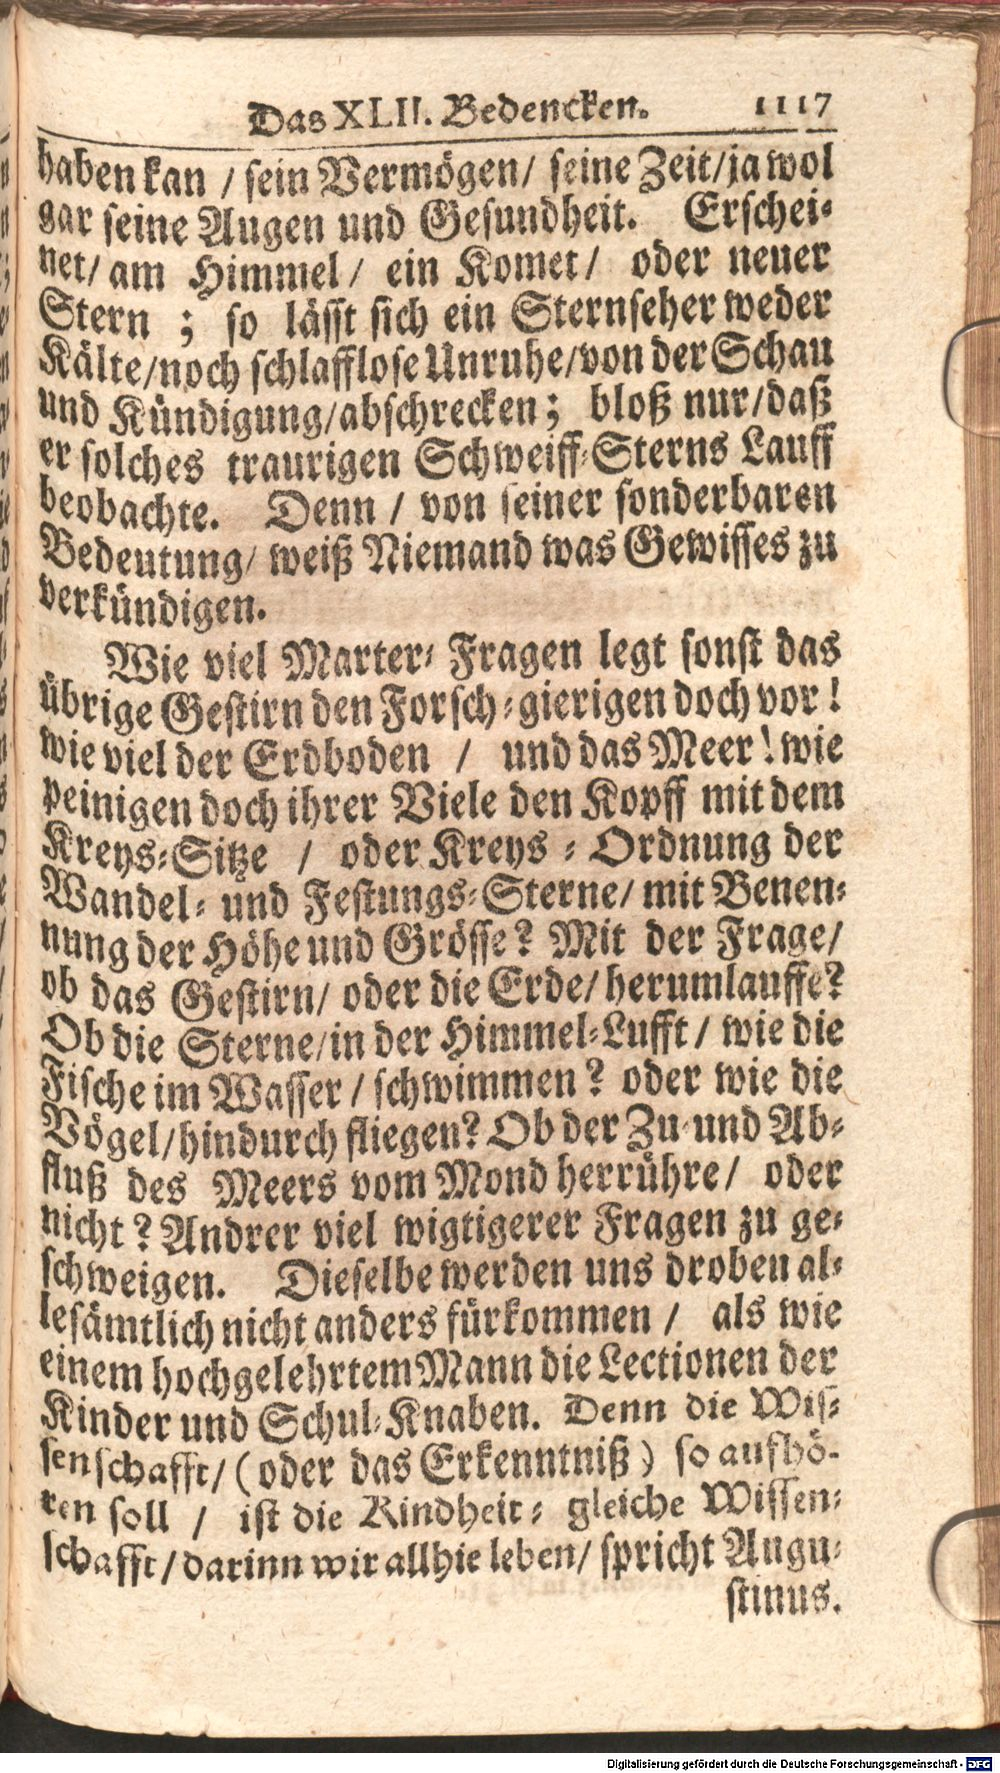 Das XLII. Bedencken. 1117
haben kan / sein Vermögen / seine Zeit / ja wol
gar seine Augen und Gesundheit. Erschei-
net / am Himmel / ein Komet / oder neuer
Stern ; so lässt sich ein Sternseher weder
Kälte / noch schlafflose Unruhe / von der Schau
und Kündigung / abschrecken ; bloß nur / daß
er solches traurigen Schweiff-Sterns Lauff
beobachte. Denn / von seiner sonderbaren
Bedeutung / weiß Niemand was Gewisses zu
verkündigen.
Wie viel Marter-Fragen legt sonst das
übrige Gestirn den Forsch-gierigen doch vor !
wie viel der Erdboden / und das Meer ! wie
peinigen doch ihrer Viele den Kopff mit dem
Kreys-Sitze / oder Kreys-Ordnung der
Wandel- und Festungs-Sterne / mit Benen-
nung der Höhe und Grösse ? Mit der Frage /
ob das Gestirn / oder die Erde / herumlauffe ?
Ob die Sterne / in der Himmel-Lufft / wie die
Fische im Wasser / schwimmen ? oder wie die
Vögel / hindurch fliegen ? Ob der Zu- und Ab-
fluß des Meers vom Mond herrühre / oder
nicht ? Andrer viel wigtigerer Fragen zu ge-
schweigen. Dieselbe werden uns droben al-
lesämtlich nicht anders fürkommen / als wie
einem hochgelehrtem Mann die Lectionen der
Kinder und Schul-Knaben. Denn die Wis-
senschafft / (oder das Erkenntniß) so aufhö-
ren soll / ist die Kindheit-gleiche Wissen-
schafft / darinn wir allhie leben / spricht Augu-
stinus.
Digitalisierung gefördert durch die Deutsche Forschungsgemeinschaft - DFG